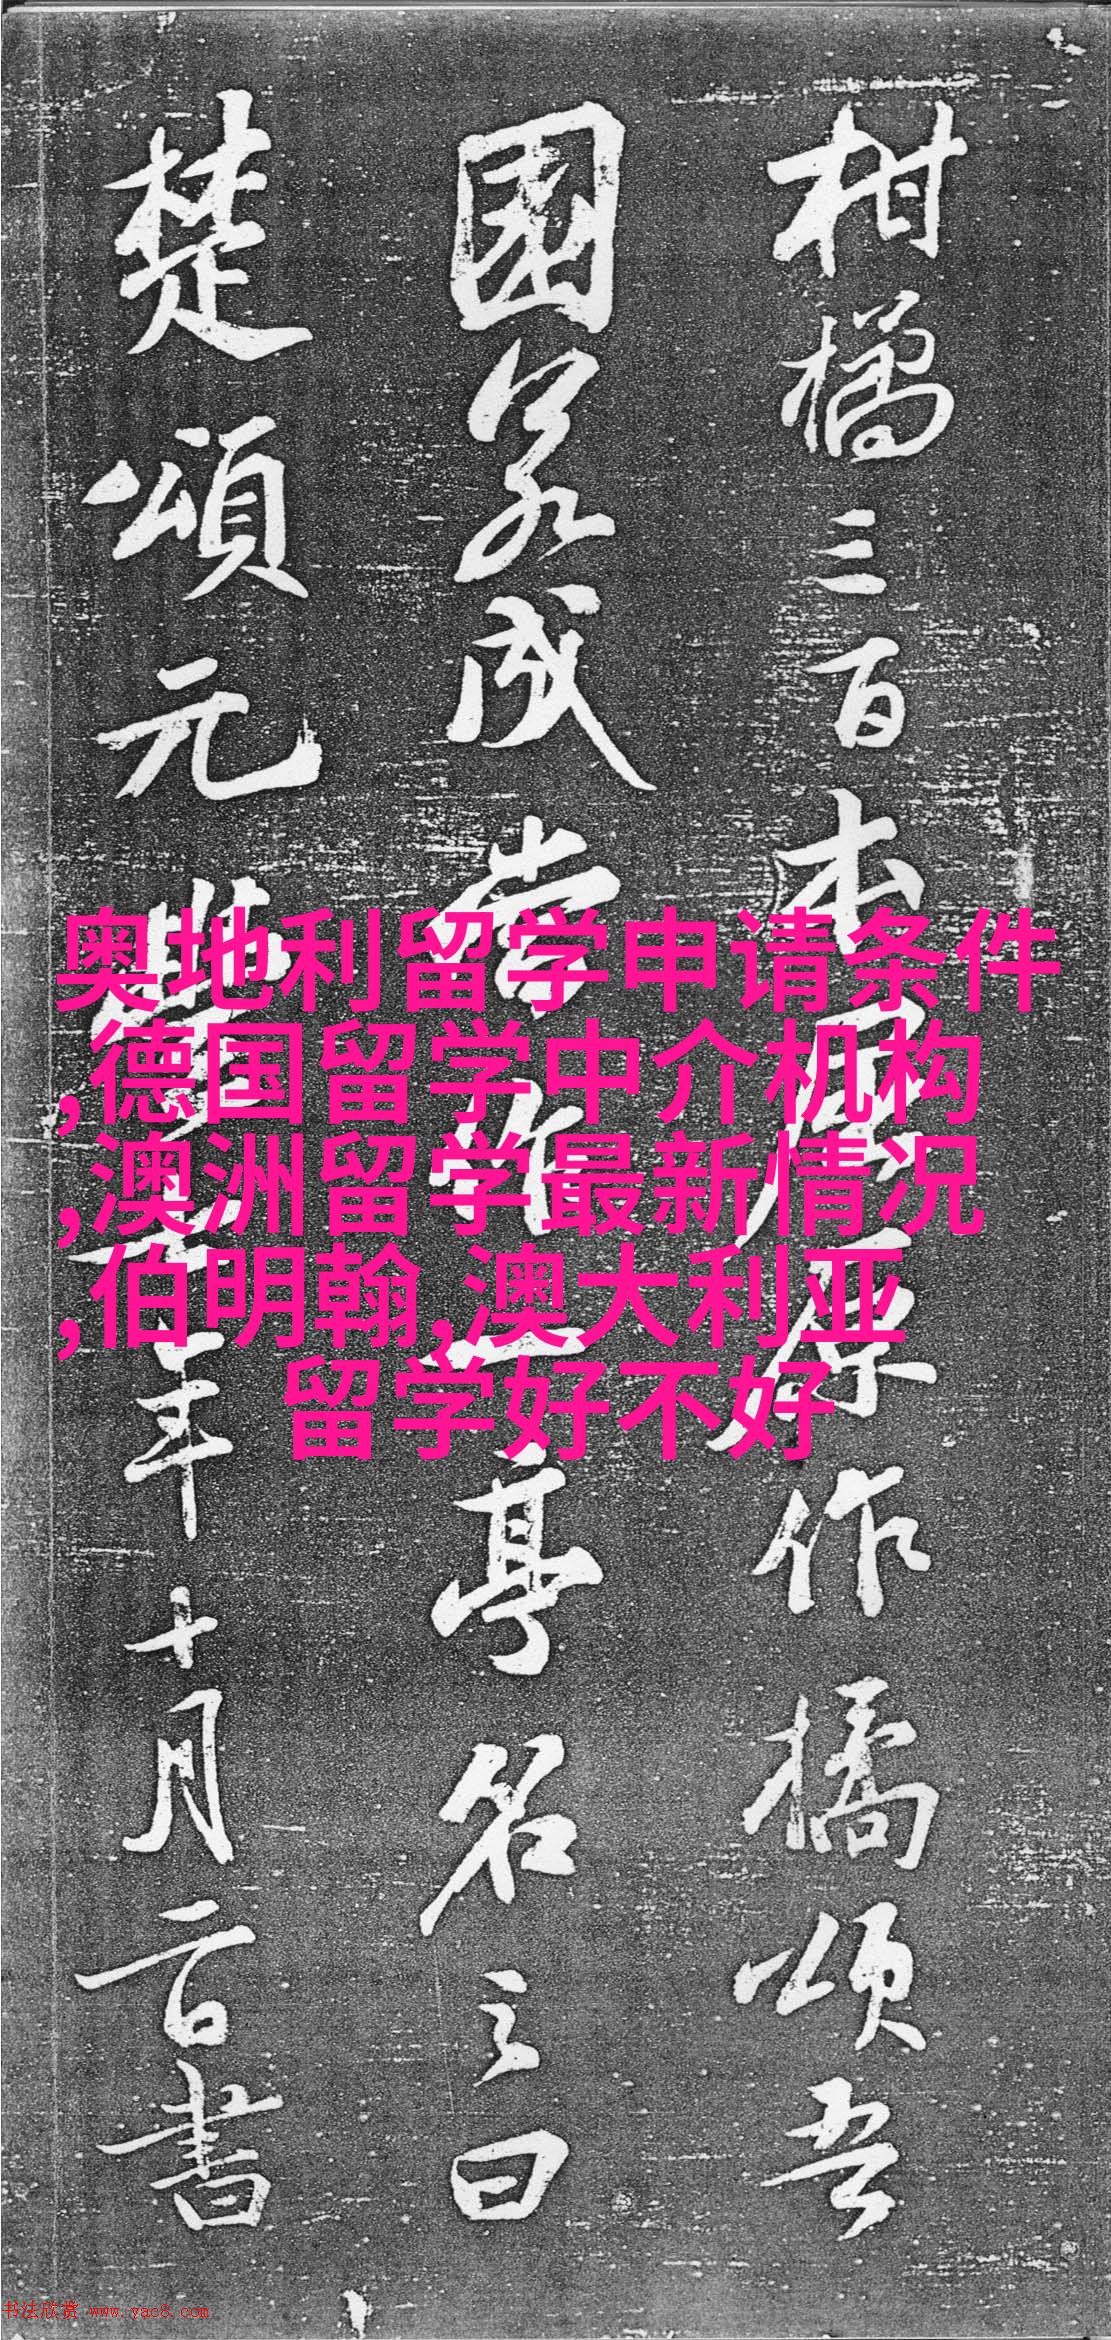 柑橘三百本屈原作橘頌吾
園若成當作一亭名之曰
楚頌元豐七年十月二日書
奥地利留学申请条件
,德国留学中介机构
,澳洲留学最新情况
,伯明翰,澳大利亚
留学好不好
书法欣赏 www.yac8.com